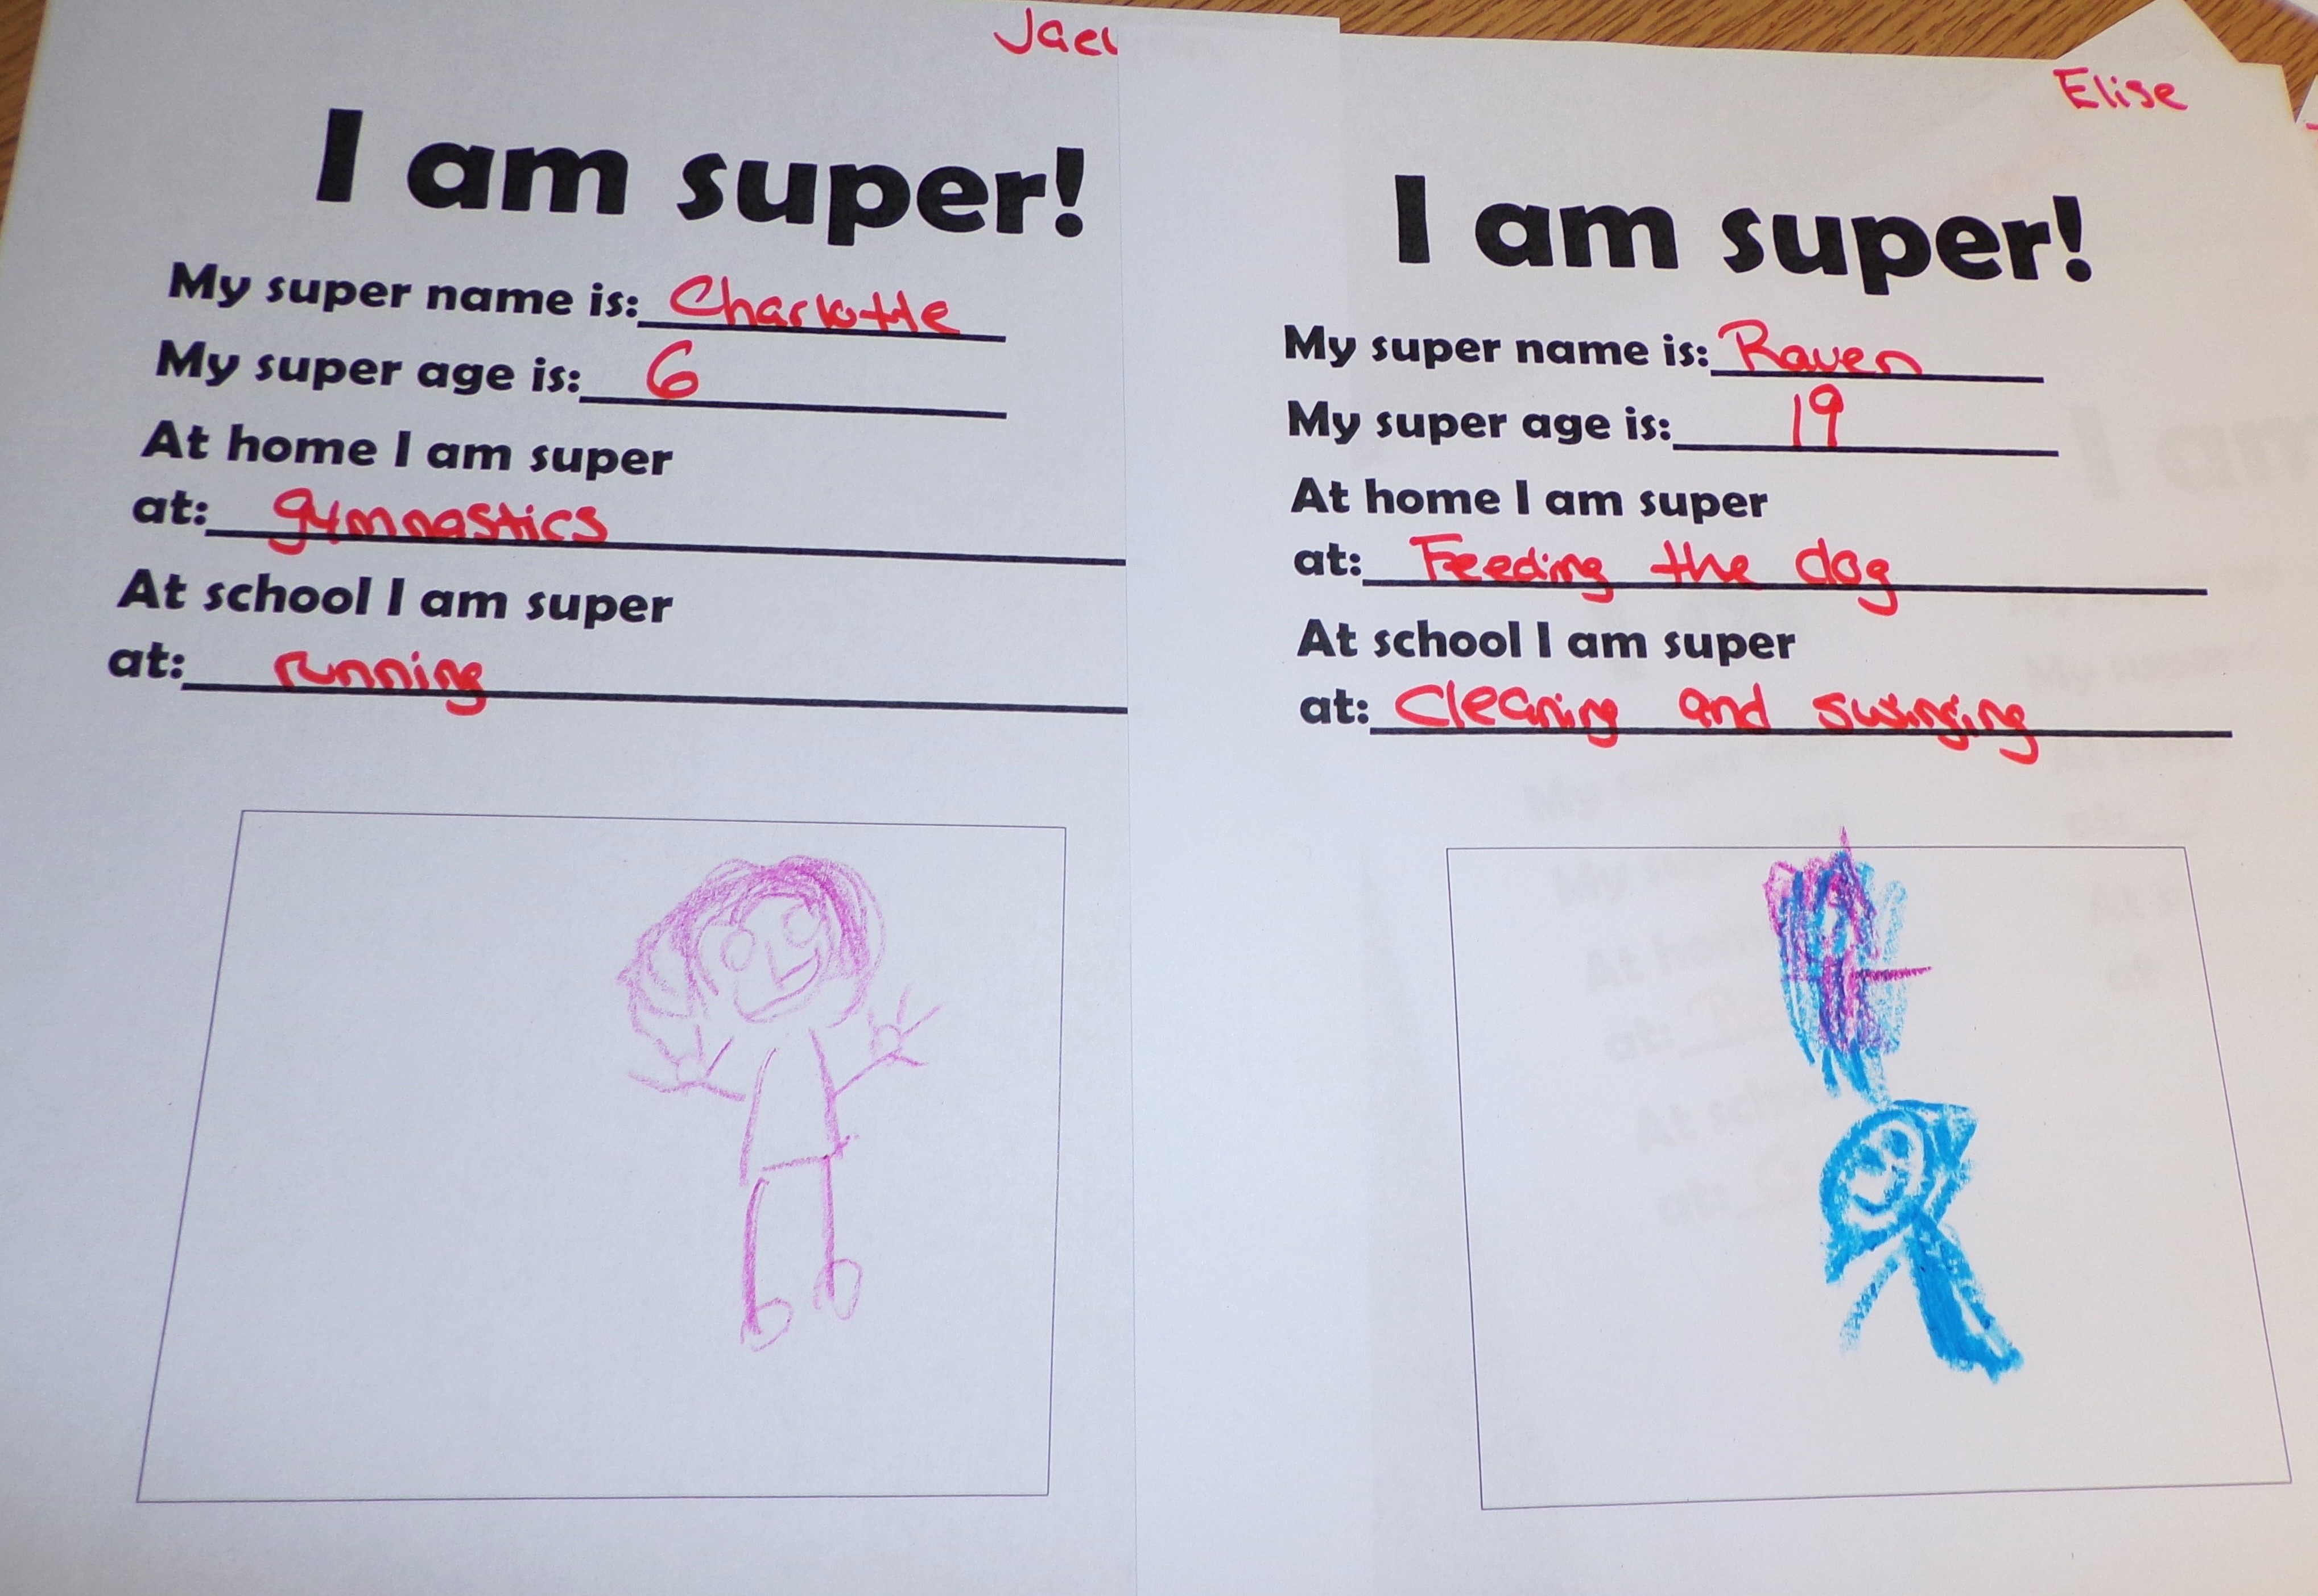 I am super!
My super name is: Charlotte
My super age is: 6
At home I am super
at: gymnastics
At school I am super
at: running
Elise
I am super!
My super name is: Raven
My super age is: 19
At home I am super
at: Feeding the dog
At school I am super
at: Cleaning and swinging